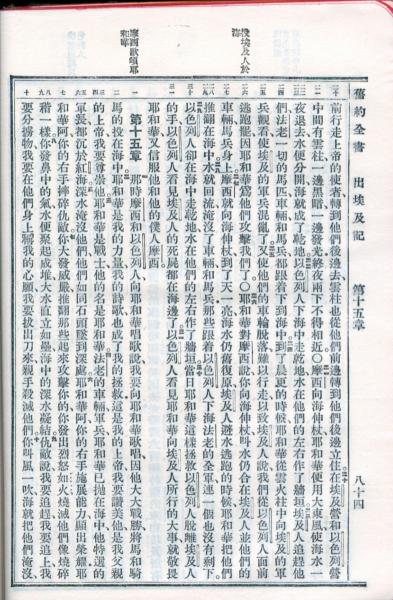 舊約全書 出埃及記 第十五章 八十四
前行走上帝的使者轉到他們後邊去雲柱也從他們前邊轉到他們後邊立住在埃及營和以色列營
中間有雲柱一邊黑暗一邊發光終夜兩下不得相近○摩西向海伸杖耶和華便用大東風使海水一
夜退去水便分開海就成了乾地以色列人下海中走乾地水在他們的左右作了牆垣埃及人追趕他
們法老一切的馬匹車輛和馬兵都跟着下到海中到了晨更的時候耶和華從雲火柱中向埃及的軍
兵觀看使埃及的軍兵混亂了又使他們的車輪脫落難以行走以致埃及人說我們從以色列人面前
逃跑罷因耶和華爲他們攻擊我們了○耶和華對摩西說你向海伸杖叫水仍合在埃及人並他們的
車輛馬兵身上摩西就向海伸杖到了天一亮海水仍舊復原埃及人避水逃跑的時候耶和華把他們
推翻在海中水就回流淹沒了車輛和馬兵那些跟着以色列人下海法老的全軍連一個也沒有剩下
以色列人卻在海中走乾地水在他們的左右作了牆垣當日耶和華這樣拯救以色列人脫離埃及人
的手以色列人看見埃及人的死屍都在海邊了以色列人看見耶和華向埃及人所行的大事就敬畏
耶和華又信服他和他的僕人摩西
第十五章 那時摩西和以色列人向耶和華唱歌說我要向耶和華歌唱因他大大戰勝將馬和騎
馬的投在海中耶和華是我的力量我的詩歌也成了我的拯救這是我的上帝我要讚美他是我父親
的上帝我要尊崇他耶和華是戰士他的名是耶和華法老的車輛軍兵耶和華已拋在海中他特選的
軍長都沉於紅海深水淹沒他們他們如同石頭墜到深處耶和華阿你的右手施展能力顯出榮耀耶
和華阿你的右手摔碎仇敵你大發威嚴推翻那些起來攻擊你的你發出烈怒如火燒滅他們像燒碎
稭一樣你發鼻中的氣水便聚起成堆大水直立如壘海中的深水凝結仇敵說我要追趕我要追上我
要分擄物我要在他們身上稱我的心願我要拔出刀來親手殺滅他們你叫風一吹海就把他們淹沒
投埃及人於
海
摩西歌頌耶
和華